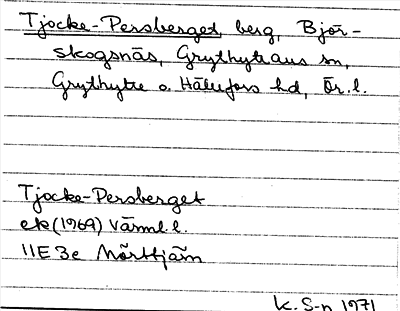 Tjocke-Persberget berg, Björ-
skogsnäs, Grythytte​ans sn,
Grythytte o. Hällefors hd, Ör. l.
Tjocke-Persberget
ek (1969) Värml. l.
11E 3e Mörttjärn
K. S-n 1971